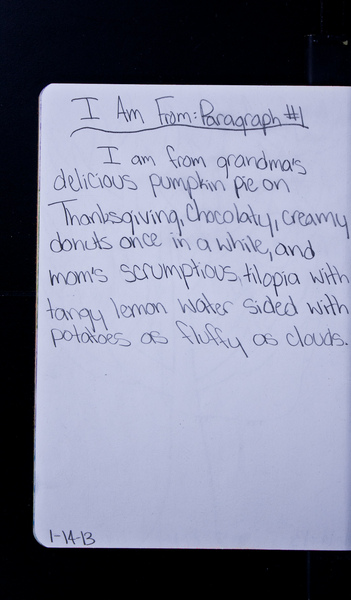 I Am From: Paragraph #1
I am from grandma's
delicious pumpkin pie on
Thanksgiving, chocolaty, creamy
donuts once in a while, and
mom's scrumptious, tilapia with
tangy lemon water sided with
potatoes as fluffy as clouds.
1-14-13